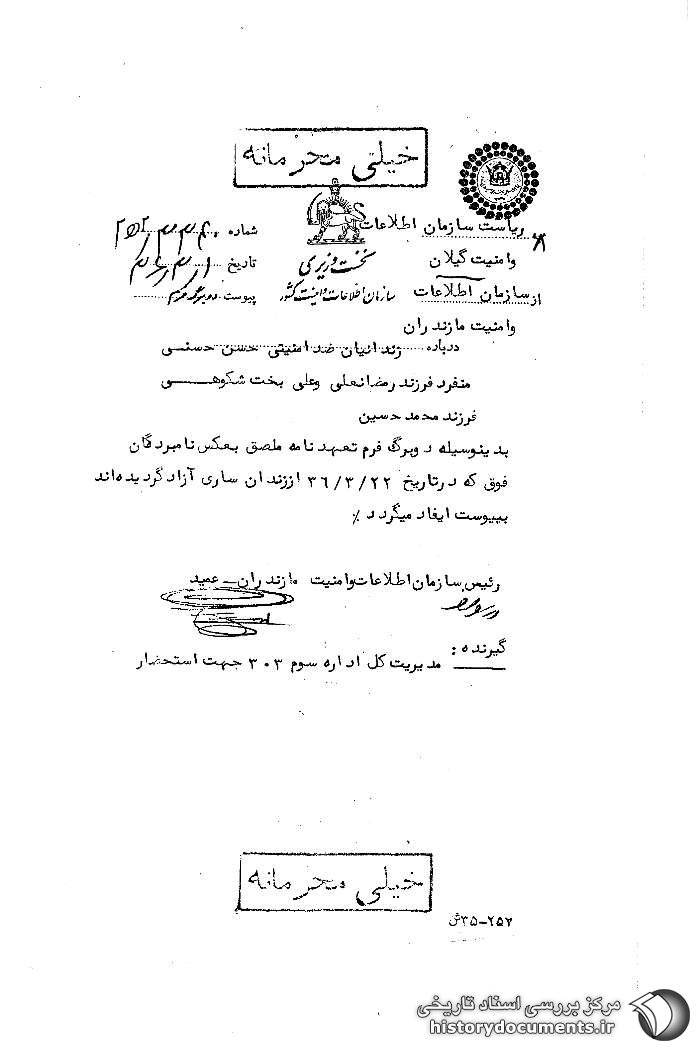 خیلی محرمانه
ریاست سازمان اطلاعات
وامنیت گیلان
از سازمان اطلاعات
وامنیت مازندران
نخست وزیری
سازمان اطلاعات و امنیت کشور
شماره
تاریخ
پیوست
درباره زندانیان ضد امنیتی حسن حسنی
منفرد فرزند رمضانعلی وعلی بخت شکوهی
فرزند محمد حسین
بدینوسیله دوبرگ فرم تعهد نامه ملصق بعکس نامبردگان
فوق که درتاریخ ۳۶/۳/۲۲ اززندان ساری آزاد گردیده‌اند
بپیوست ایفاد میگردد ٪
رئیس سازمان اطلاعات وامنیت مازندران – عمید
گیرنده :
مدیریت کل اداره سوم ۳۰۳ جهت استحضار
خیلی محرمانه
۳۵-۲۵۲ش
مرکز بررسی اسناد تاریخی
historydocuments.ir